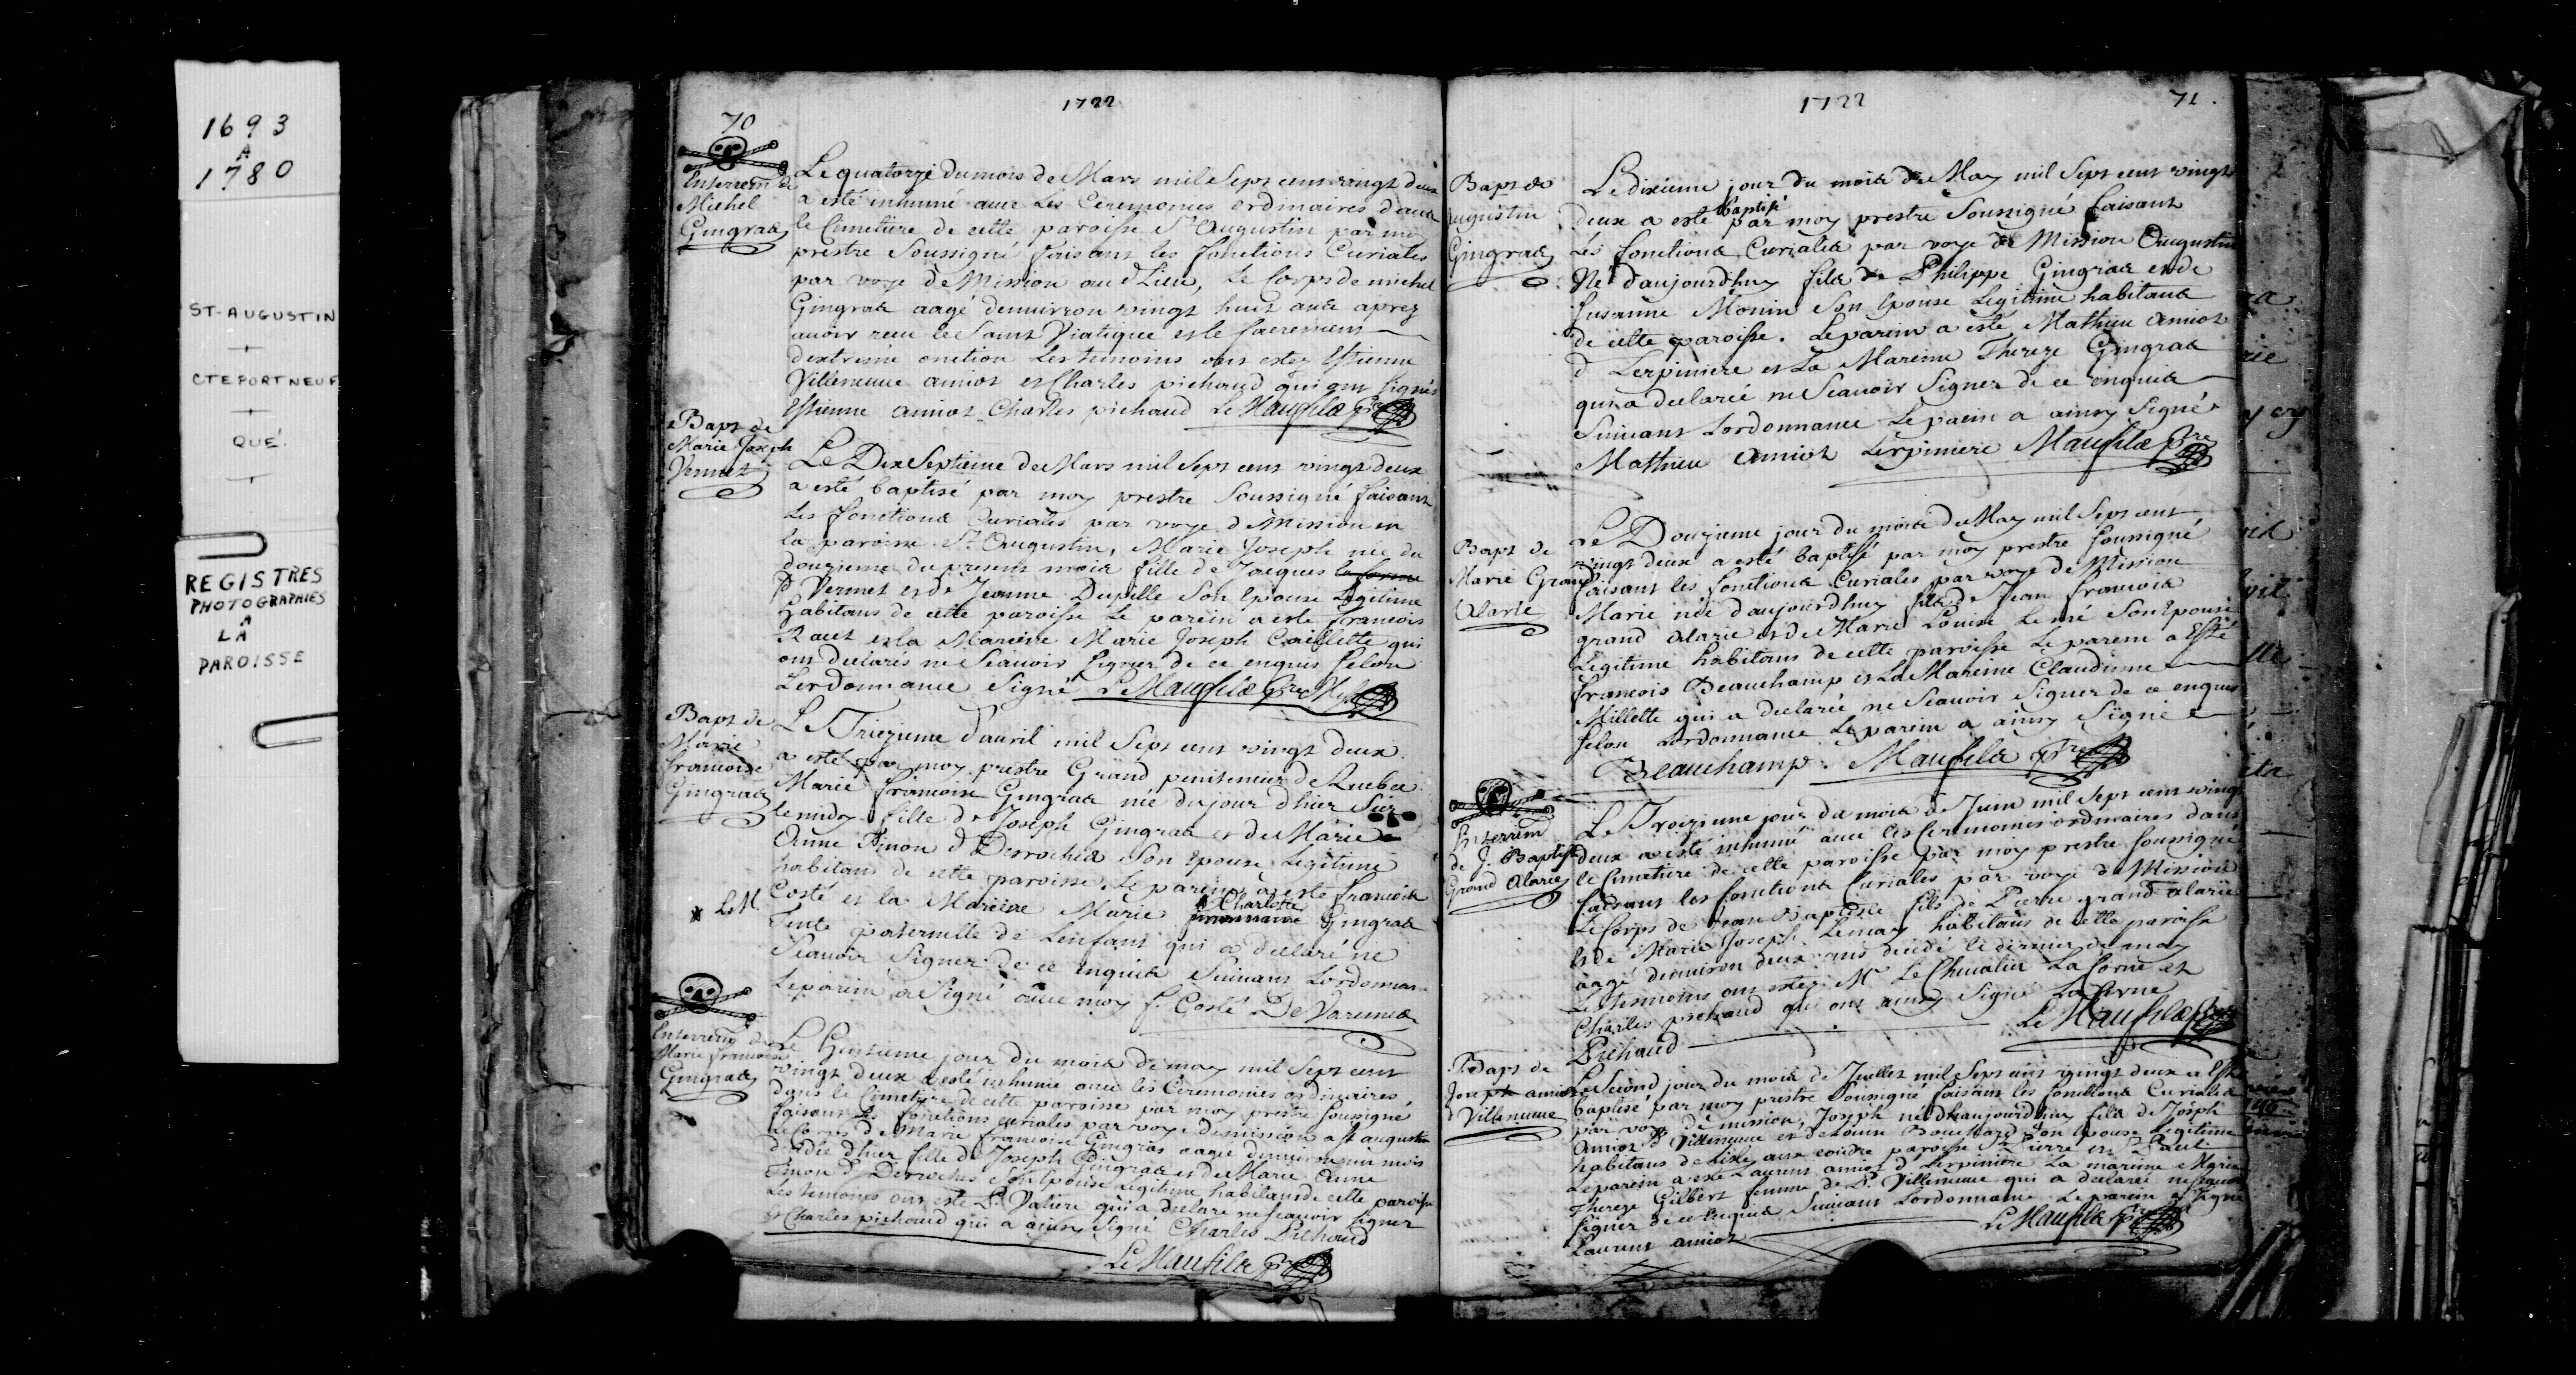 1693
A
1780
ST-AUGUSTIN
CTE PORTNEUF
QUÉ.
REGISTRES
PHOTOGRAPHIES
A
LA
PAROISSE
1722
70
Enterrem de
Michel
Gingras
Le quatorze du mois de Mars mil Sept cent vingt deux
a esté inhumé avec Les Ceremonies ordinaires dans
le Cimetiere de cette paroisse St Augustin par moy
prestre Soussigné faisant les fonctions Curiales
par voye de Mission au d Lieu, Le Corps de michel
Gingras aagé denviron vingt huit ans aprez
avoir receu le Saint Viatique et le sacrement
dextreme onction Les temoins ont estez Estienne
Villeneuve amiot et Charles pichaud qui ont signés
Estienne amiot Charles pichaud Le Maufils Ptre
Bapt de
Marie Joseph
Vermet
Le Dix Septieme de Mars mil Sept cent vingt deux
a esté baptisé par moy prestre Soussigné faisant
Les fonctions Curiales par voye de Mission en
la paroisse St Augustin, Marie Joseph née du
douzieme du present mois fille de Jacques
d Vermet et de Jeanne Dupille Son Epouse Legitime
habitans de cette paroisse Le parein a esté francois
Racet et la Mareine Marie Joseph Caillette qui
ont declarés ne Scavoir signer de ce enquis selon
Lordonnance Signé Le Maufils Ptre
Bapt de
Marie
francoise
Gingras
Le Treizieme d'avril mil Sept cent vingt deux
a esté par moy prestre Grand penitencier de Quebec
Marie francoise Gingras née du jour d'hier Sur
le midy fille de Joseph Gingras et de Marie
Anne Tinon d Desroches Son Epouse Legitime
habitans de cette paroisse. Le parein a esté francois
Costé et la Mareine Marie Charlotte Gingras
Tante paternelle de Lenfant qui a declaré ne
Scavoir Signer de ce enquise Suivant Lordonnance
Le parein a Signé avec moy f. Costé De Varennes
Enterrem de
Marie francoise
Gingras
Le Huitieme jour du mois de may mil Sept cent
vingt deux a esté inhumée avec les Ceremonies ordinaires
dans le Cimetiere de cette paroisse par moy prestre soussigné
faisant les fonctions curiales par voye de mission a St augustin
Le Corps de Marie francoise Gingras aagée denviron un mois
decedée d'hier fille de Joseph Gingras et de Marie Anne
Tinon d Desroches Son Epouse Legitime habitans de cette paroisse
Les temoins ont esté P. Valiere qui a declare ne scavoir signer
et Charles pichaud qui a ainsy Signé Charles Pichaud
Le Maufils Ptre
1722
71.
Bapt de
augustin
Gingras
Le dixieme jour du mois de May mil Sept cent vingt
deux a esté baptisé par moy prestre Soussigné faisant
Les fonctions Curiales par voye de Mission Augustin
Né d'aujourdhuy fils de Philippe Gingras et de
Susanne Monin Son Epouse Legitime habitans
de cette paroisse. Le parein a esté Mathieu amiot
d Lerpiniere et La Mareine Thereze Gingras
qui a declarée ne Scavoir Signer de ce enquise
Suivant Lordonnance Le parein a ainsy Signé
Mathieu Amiot Lerpiniere Maufils Ptre
Bapt de
Marie Grand
Alarie
Le Douzieme jour du mois de May mil Sept cent
vingt deux a esté baptisé par moy prestre soussigné
faisant les fonctions Curiales par voye de Mission
Marie née d'aujourdhuy fille de Jean francois
grand alarie et de Marie Louise Lemé Son Epouse
Legitime habitans de cette paroisse Le parein a Esté
francois Beauchamp et La Mareine Claudinne
Millette qui a declarée ne Scavoir Signer de ce enquise
selon Lordonnance Le parein a ainsy Signé
Beauchamp. Maufils Ptre
Enterrem
de J. Baptiste
Grand Alarie
Le Troizieme jour du mois de Juin mil Sept cent vingt
deux a esté inhumé avec les ceremonies ordinaires dans
le Cimetiere de cette paroisse par moy prestre soussigné
faisant les fonctions Curiales par voye de Mission
Le Corps de Jean Baptiste fils de Pierre grand alarie
et de Marie Joseph Lemay habitans de cette paroisse
aagé denviron deux ans decedé le dernier de may
Les temoins ont estez Mr Le Chevalier La Corne et
Charles pichaud qui ont ainsy Signé La Corne
Pichaud
Le Maufils Ptre
Bapt de
Joseph amiot
d Villeneuve
Le Second jour du mois de Juillet mil Sept cent vingt deux a Esté
baptisé par moy prestre Soussigné faisant les fonctions Curiales
par voye de mission, Joseph né D'haujourdhuy fils de Joseph
Amiot d Villeneuve et de Louise Bouchard Son Epouse Legitime
habitans de Lisle aux coudre paroisse St Pierre et St Paul
Le parein a esté Laurent amiot d Lerpiniere La mareine Marie
Thereze Gilbert femme de P. Villeneuve qui a declarée ne Scavoir
signer de ce enquise Suivant Lordonnance Le parein a signé
Laurent amiot
Le Maufils Ptre